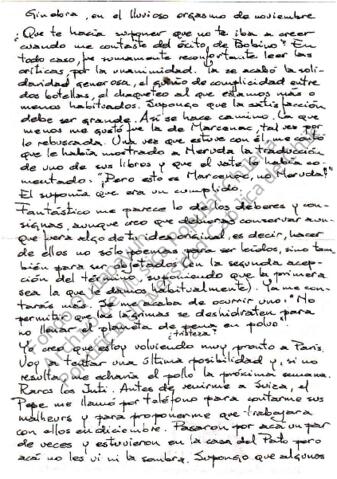 Ginebra, en el lluvioso orgasmo de noviembre
¿Que te hacía suponer que no te iba a creer
cuando me contaste del éxito, de Bobino? En
todo caso, fue sumamente reconfortante leer las
críticas, por la unanimidad. Ya se acabó la soli-
daridad generosa, el guiño de complicidad entre
dos botellas, el chaqueteo al que estamos más o
menos habituados. Supongo que la satisfacción
debe ser grande. Así se hace camino. La que
menos me gustó fue la de Marcenac, tal vez por
lo rebuscada. Una vez que estuve con él me contó
que le había mostrado a Neruda la traducción
de uno de sus libros y que el vate le había co-
mentado: "¡Pero esto es Marcenac, no Neruda!"
El suponía que era un cumplido.
Fantástico me parece lo de los deberes y con-
signas, aunque creo que debieras conservar aun-
que fuera algo de tu idea original, es decir, hacer
de ellos no sólo poemas para ser leídos, sino tam-
bién para ser objetados (en la segunda acep-
ción del término, suponiendo que la primera
sea la que le damos habitualmente). Ya me con-
tarás más. Se me acaba de ocurrir uno: "No
permitir que las lágrimas se deshidraten para
no llenar el planeta de pena en polvo"
tristeza
Yo creo que estoy volviendo muy pronto a París.
Voy a tentar una última posibilidad y, si no
resulta, me echaría el pollo la próxima semana.
Raros los Inti. Antes de venirme a Suiza, el
Pepe me llamó por teléfono para contarme sus
malheurs y para proponerme que trabajara
con ellos en diciembre. Pasaron por acá un par
de veces y estuvieron en la casa del Pato pero
acá no les vi ni la sombra. Supongo que algunos